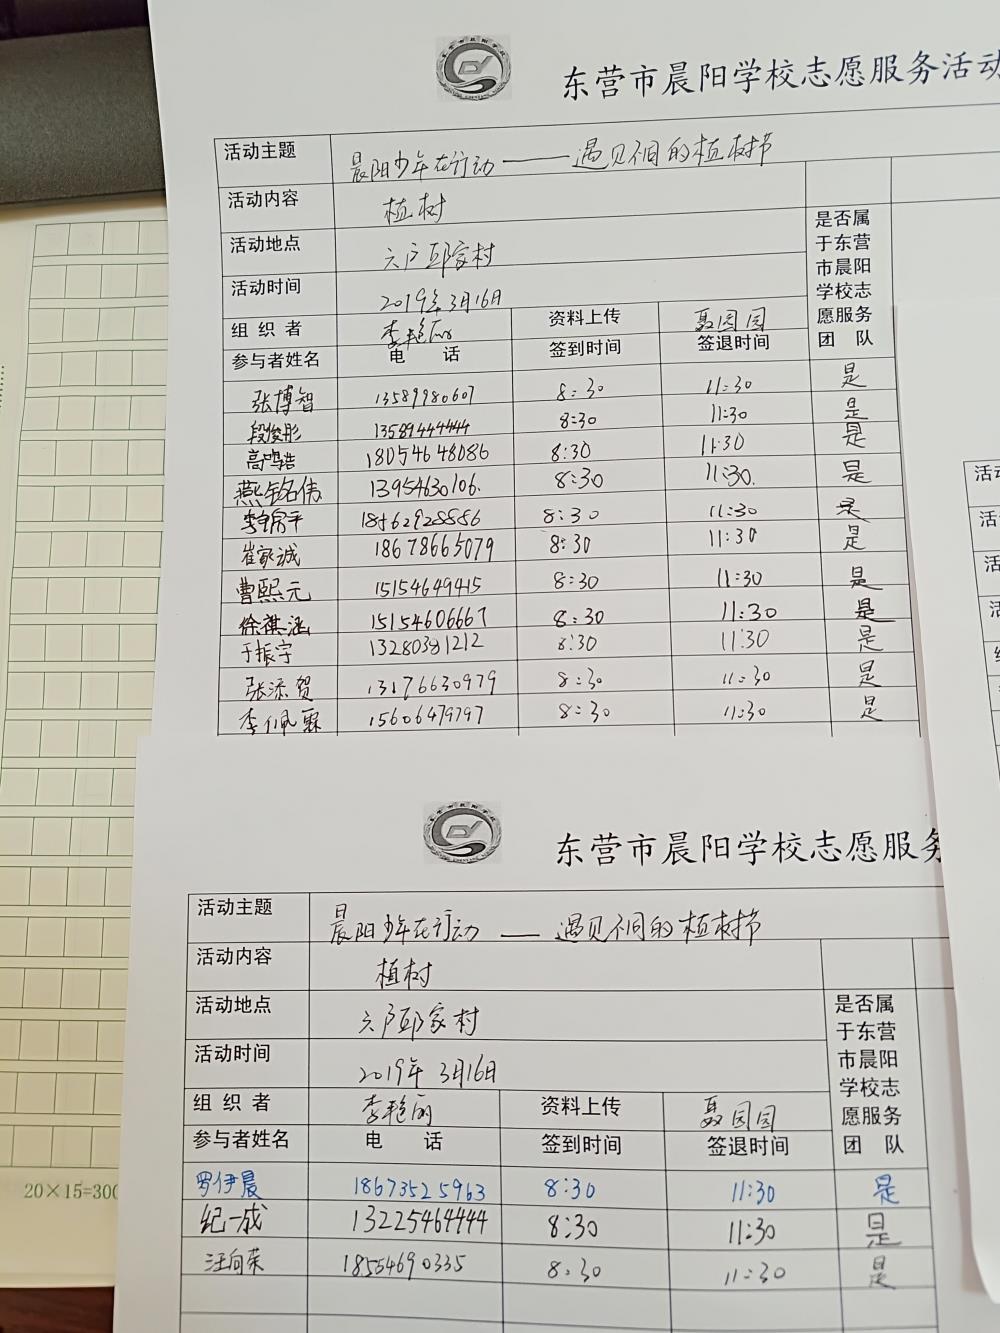 东营市晨阳学校志愿服务活动
活动主题 晨阳少年在行动——遇见不同的植树节
活动内容 植树
活动地点 六户邱家村
活动时间 2019年3月16日
是否属于东营市晨阳学校志愿服务团队
组织者 李艳丽 资料上传 聂园园
参与者姓名 电话 签到时间 签退时间
张博智 13589980607 8:30 11:30 是
段俊彤 13589444444 8:30 11:30 是
高鸣浩 18054648086 8:30 11:30 是
燕铭伟 13954630106. 8:30 11:30. 是
18462928886 8:30 11:30 是
崔家诚 18678665079 8:30 11:30 是
曹熙元 15154649415 8:30 11:30 是
徐祺涵 15154606667 8:30 11:30 是
于振宇 13280381212 8:30 11:30 是
张添贺 13176630979 8:30 11:30 是
李佩霖 15606479797 8:30 11:30 是
东营市晨阳学校志愿服务
活动主题 晨阳少年在行动——遇见不同的植树节
活动内容 植树
活动地点 六户邱家村
活动时间 2019年3月16日
是否属于东营市晨阳学校志愿服务团队
组织者 李艳丽 资料上传 聂园园
参与者姓名 电话 签到时间 签退时间
罗伊晨 18673525963 8:30 11:30 是
纪一成 13225464444 8:30 11:30 是
汪向荣 18554690335 8:30 11:30 是
20×15=300